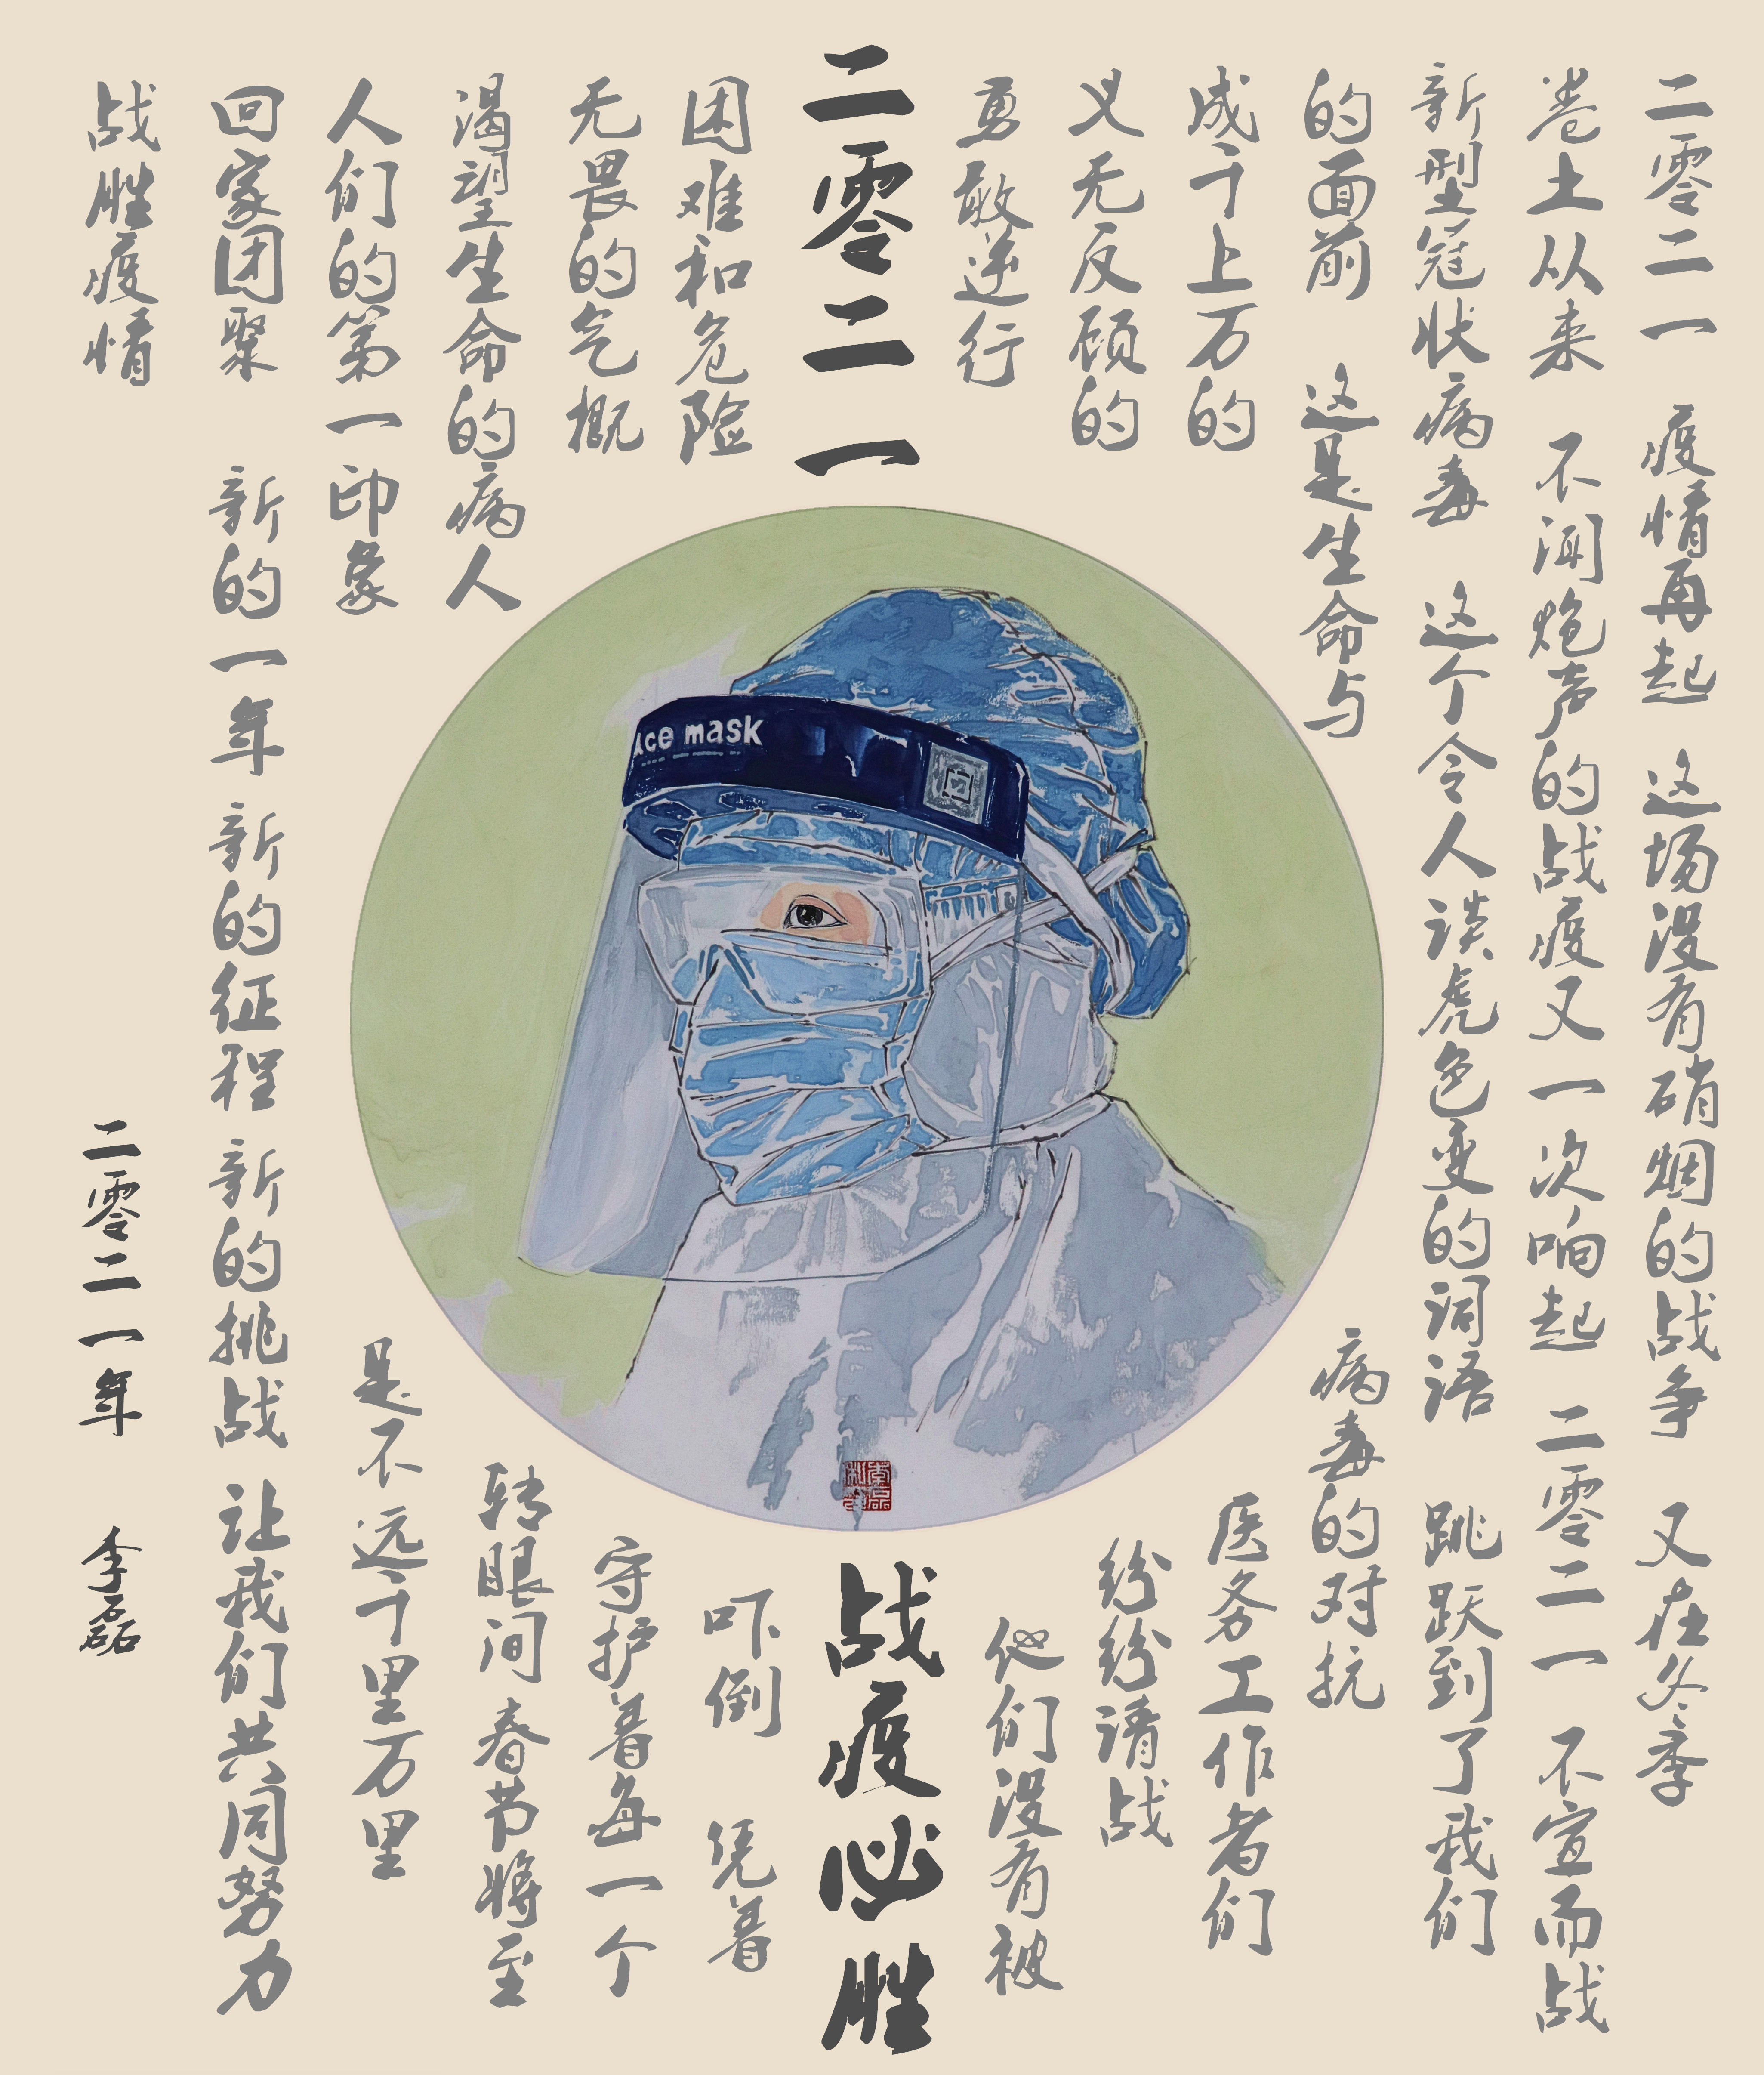 二零二一 疫情再起 这场没有硝烟的战争 又在冬季
卷土从来 不闻炮声的战疫又一次响起 二零二一 不宣而战
新型冠状病毒 这个令人谈虎色变的词语 跳跃到了我们
的面前 这是生命与
病毒的对抗
成千上万的
医务工作者们
义无反顾的
纷纷请战
勇敢逆行
他们没有被
二零二一
战疫必胜
困难和危险
吓倒 凭着
无畏的气概
守护着每一个
渴望生命的病人
转眼间春节将至
人们的第一印象
是不远千里万里
回家团聚 新的一年 新的征程 新的挑战 让我们共同努力
战胜疫情
二零二一年 李磊
ace mask